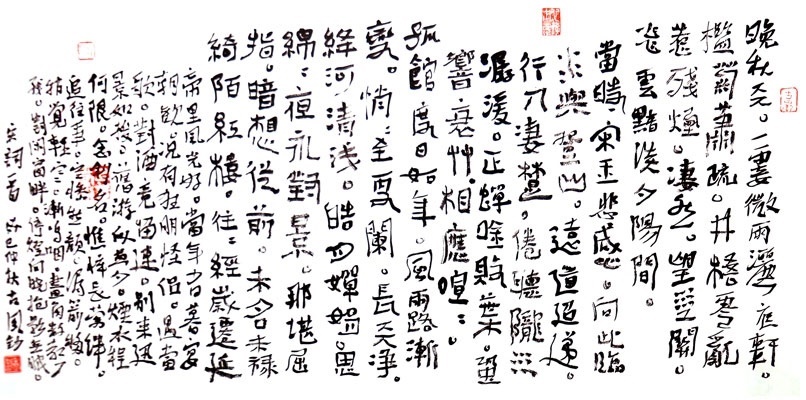 晚秋天。一霎微雨灑庭軒。
檻菊蕭疏。井梧零亂
惹殘煙。凄然。望江關。
飛雲黯淡夕陽間。
當時宋玉悲感。向此臨
水與登山。遠道迢遞。
行人凄楚。倦聽隴水
潺湲。正蟬吟敗葉。蛩
響衰艸。相應喧〻。
孤館度日如年。風露漸
變。悄〻至更闌。長天淨。
絳河清淺。皓月嬋娟。思
綿〻。夜永對景。那堪屈
指。暗想從前。未名未祿
綺陌紅樓。往〻經歲遷延
帝里風光好。當年少日暮宴
朝歡。況有狂朋怪侶。遇當
歌。對酒竟留連。別來迅
景如梭。舊游似夢。煙水程
何限。念利名。憔悴長縈絆。
追往事。空慘愁顏。漏箭移。
稍覺輕寒。漸嗚咽。畫角數聲
殘。對閒窗畔。停燈向曉抱影無眠。
宋詞一首 仲秋古風抄